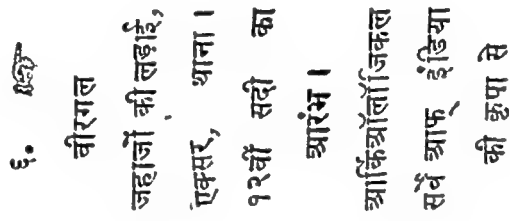 ६. ☞
वीरगल
जहाजों की लड़ाई,
एक्सर, थाना ।
१२वीं सदी का
आरंभ ।
आर्किऑलॉजिकल
सर्वे आफ़् इंडिया
की कृपा से